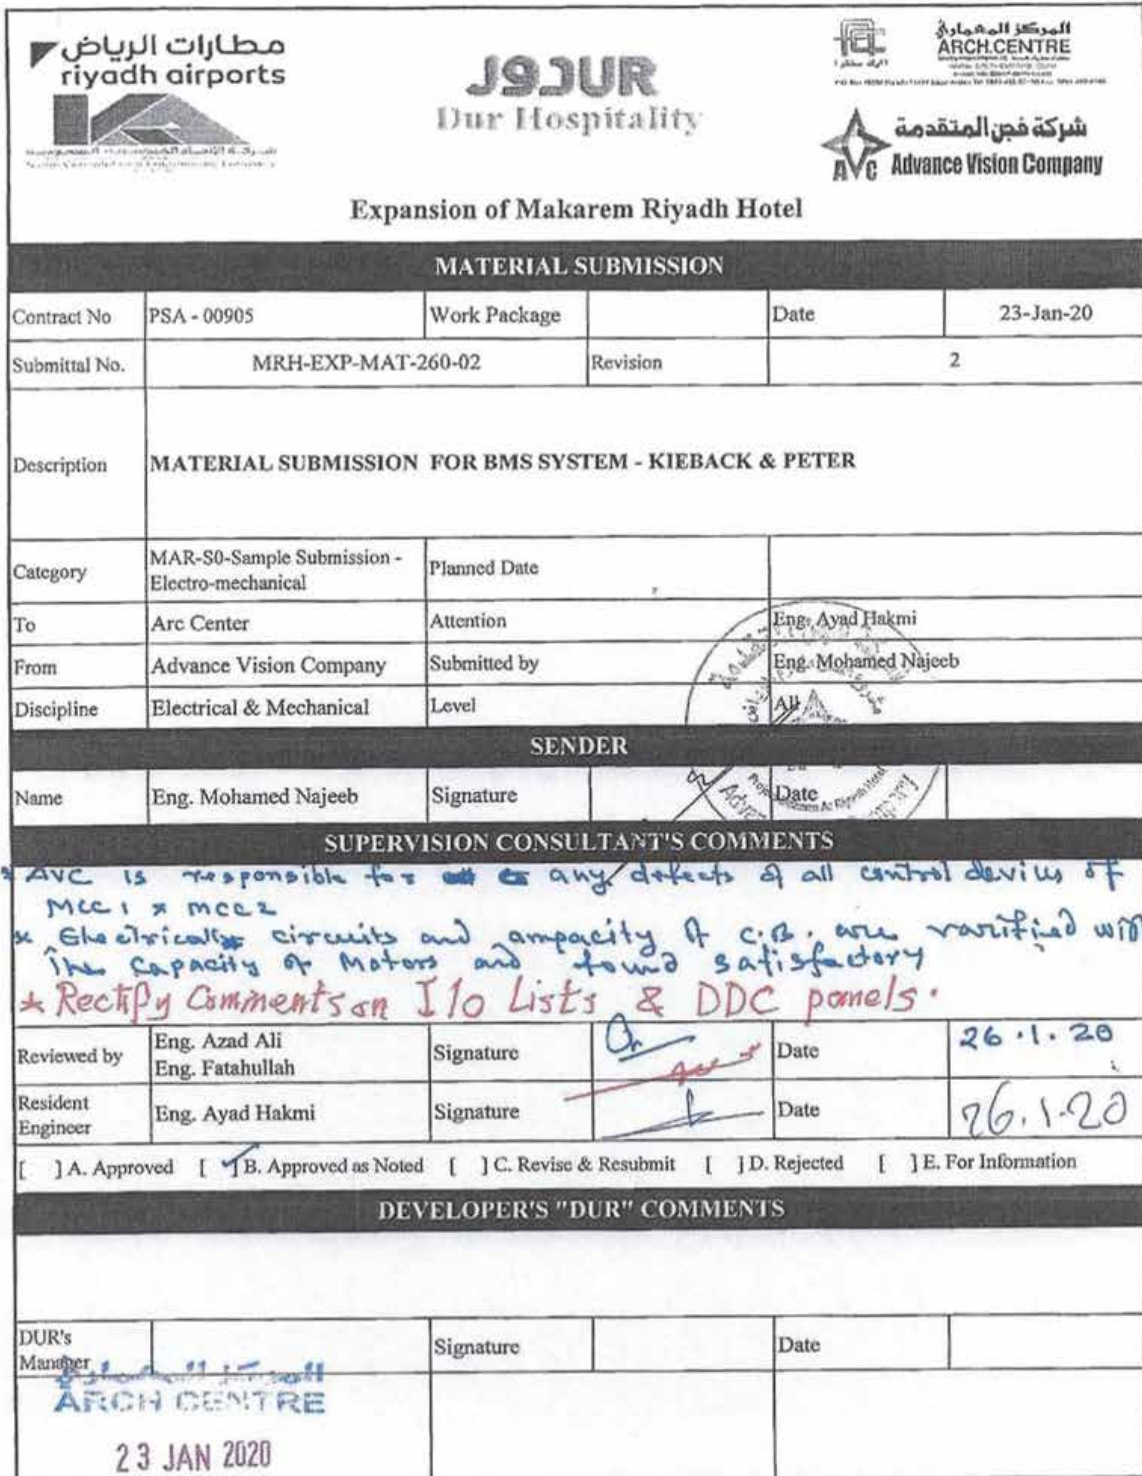 مطارات الرياض
riyadh airports
دور DUR
Dur Hospitality
المركز المعماري
ARCH.CENTRE
شركة فجن المتقدمة
AVC Advance Vision Company
Expansion of Makarem Riyadh Hotel
MATERIAL SUBMISSION
Contract No PSA - 00905 Work Package Date 23-Jan-20
Submittal No. MRH-EXP-MAT-260-02 Revision 2
Description MATERIAL SUBMISSION FOR BMS SYSTEM - KIEBACK & PETER
Category MAR-S0-Sample Submission - Electro-mechanical Planned Date
To Arc Center Attention Eng. Ayad Hakmi
From Advance Vision Company Submitted by Eng. Mohamed Najeeb
Discipline Electrical & Mechanical Level All
SENDER
Name Eng. Mohamed Najeeb Signature Date
SUPERVISION CONSULTANT'S COMMENTS
* AVC is responsible for any defects of all control devices of
MCC1 & MCC2
* Electrically circuits and ampacity of C.B. are varified with
The Capacity of Motors and found satisfactory
* Rectify Comments on I/O Lists & DDC panels.
Reviewed by Eng. Azad Ali Signature Date 26.1.20
Eng. Fatahullah
Resident Engineer Eng. Ayad Hakmi Signature Date 26.1.20
[ ] A. Approved [ ✓ ] B. Approved as Noted [ ] C. Revise & Resubmit [ ] D. Rejected [ ] E. For Information
DEVELOPER'S "DUR" COMMENTS
DUR's Manager Signature Date
المركز المعماري
ARCH CENTRE
23 JAN 2020